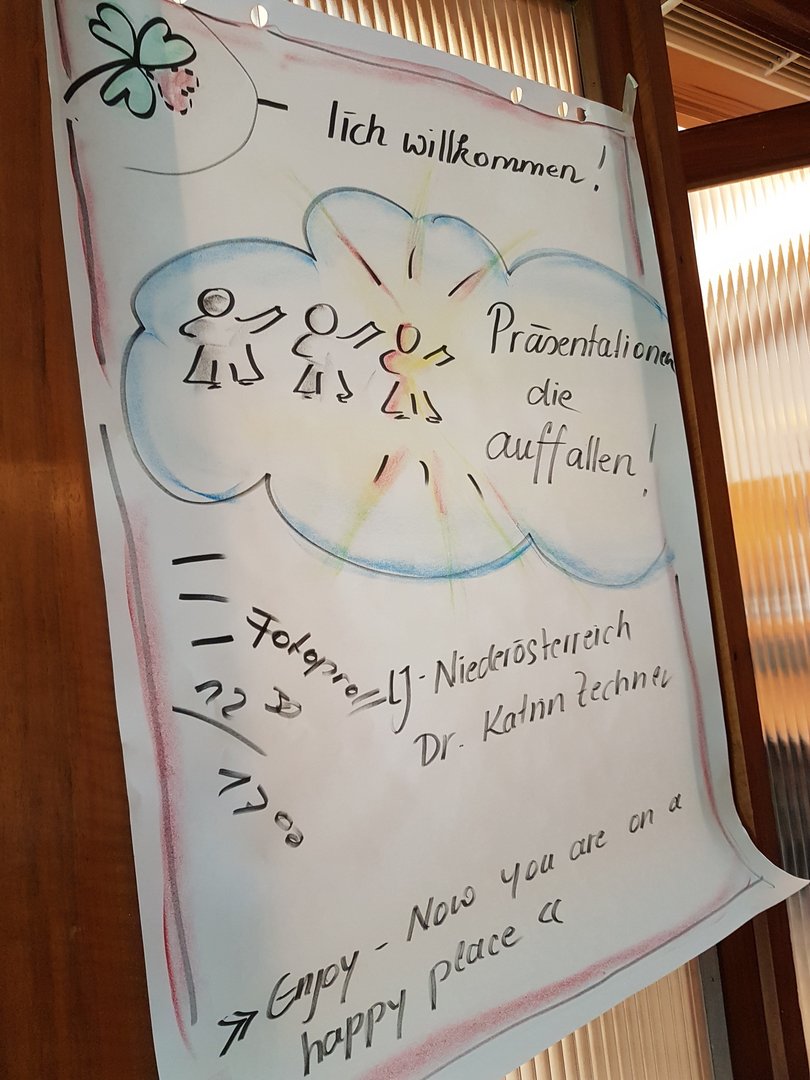 - lich willkommen!
Präsentationen
die
auffallen!
Fotoproll
LJ-Niederösterreich
Dr. Katrin Zechner
» Enjoy - Now you are on a
happy place «